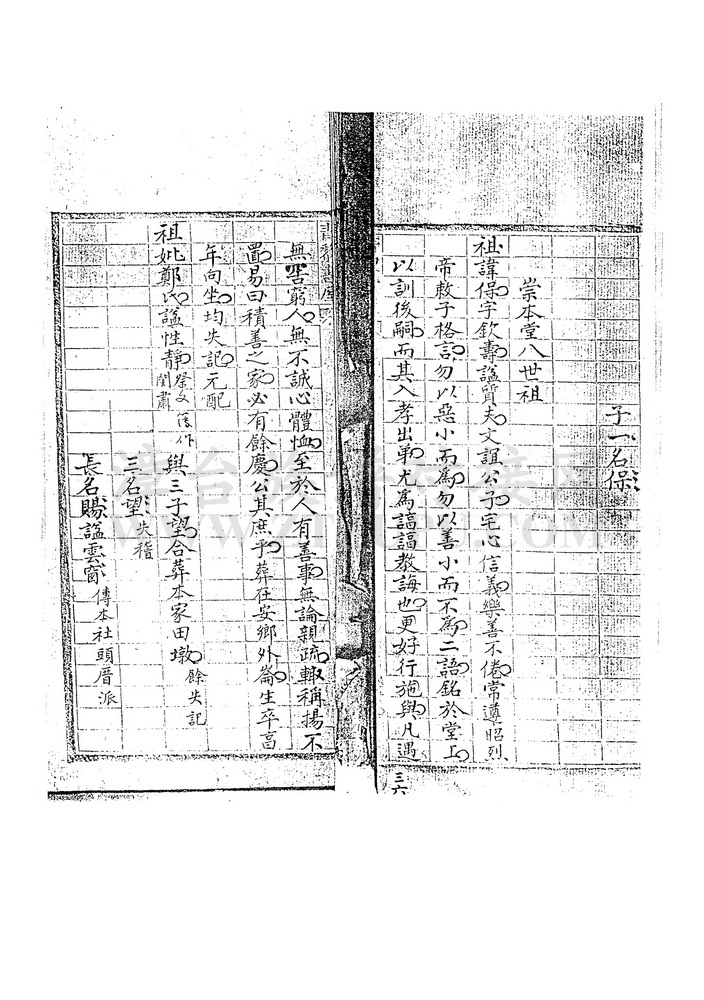 子一名保
崇本堂八世祖
祖諱保字欽壽謚質夫文誼公子宅心信義樂善不倦常遵昭烈
帝敕子格言勿以惡小而為勿以善小而不為二語銘於堂上
以訓後嗣而其入孝出弟尤為諄諄教誨也更好行施與凡遇
三六
無告窮人無不誠心體恤至於人有善事無論親疏輒稱揚不
置易曰積善之家必有餘慶公其庶乎葬在安鄉外崙生卒高
年向坐均失記元配
祖妣鄭氏謚性靜祭文作閨肅與三子望合葬本家田墩餘失記
三名望失稽
長名賜謚雲窗傳本社頭厝派